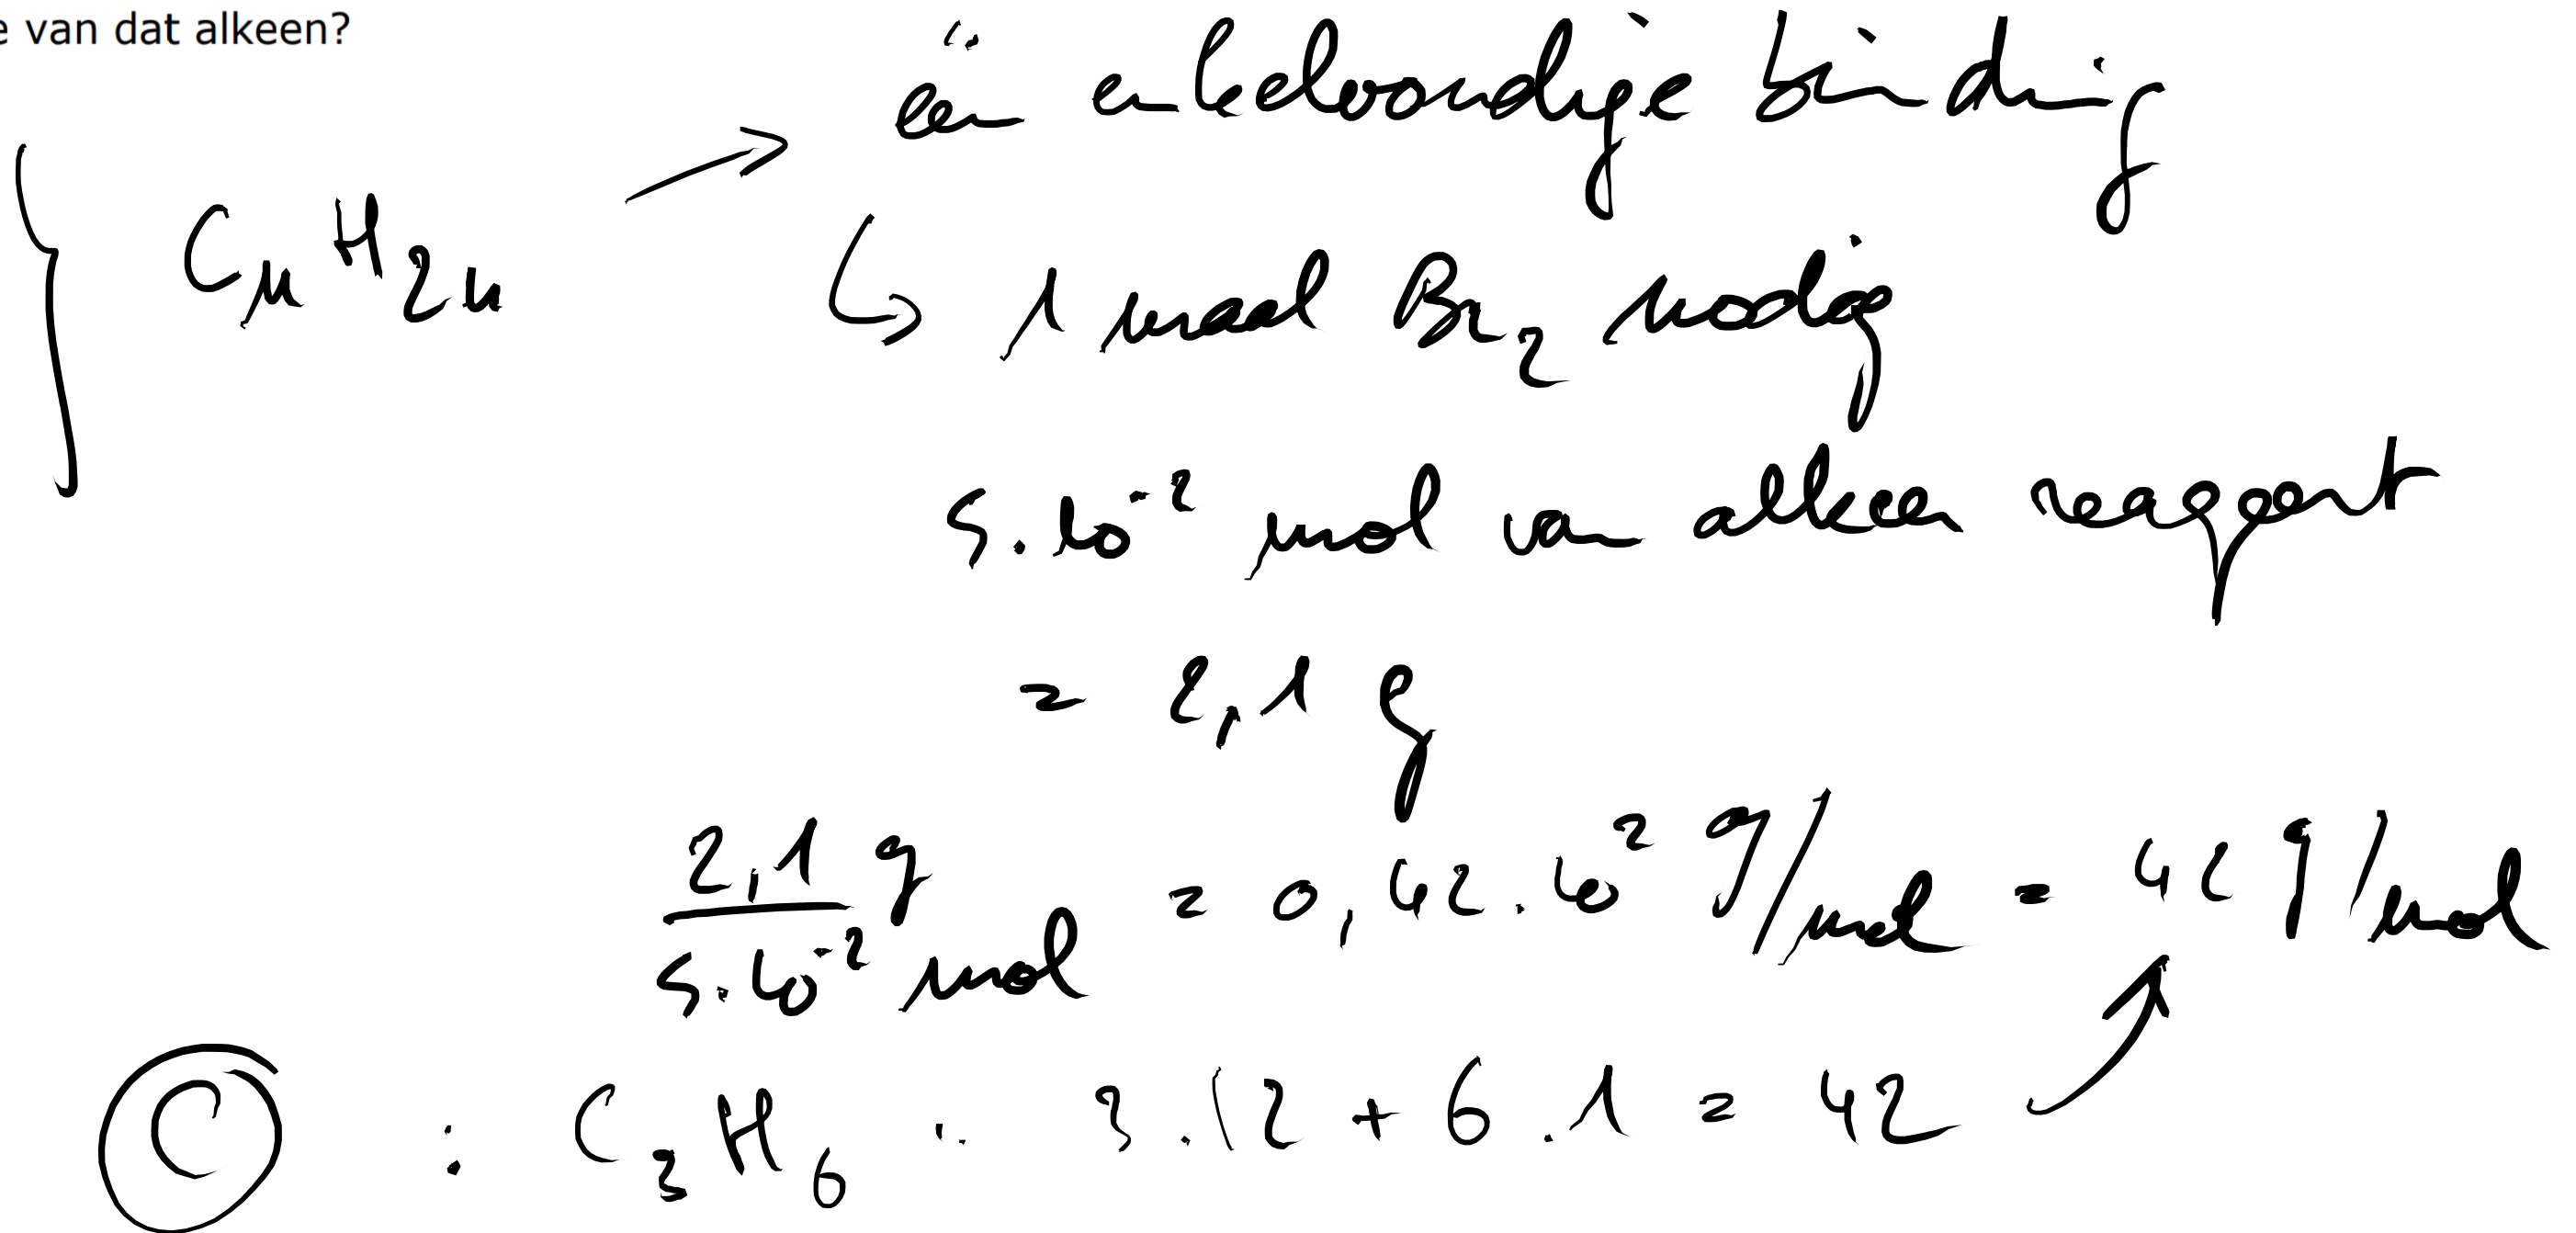 e van dat alkeen?
één enkelvoudige binding
CnH2n → 
↳ 1 maal Br2 nodig
5.10^-2 mol van alkeen reageert
= 2,1 g
2,1 g / 5.10^-2 mol = 0,42.10^2 g/mol = 42 g/mol
C : C3H6 : 3.12 + 6.1 = 42